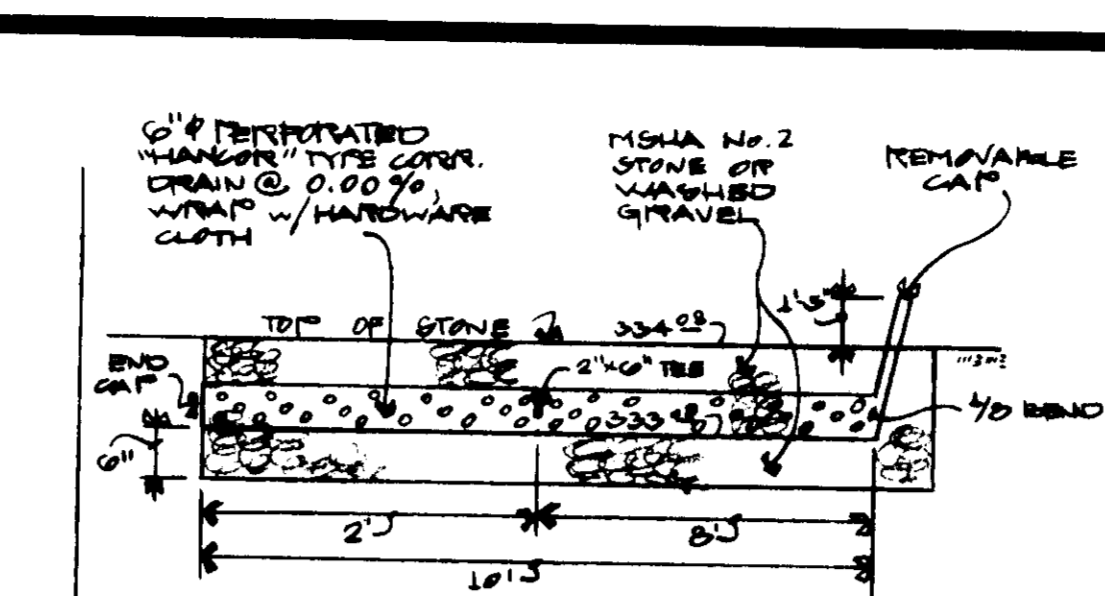 6"φ PERFORATED
"HANCOR" TYPE CORR.
DRAIN @ 0.00%,
WRAP w/ HARDWARE
CLOTH
MSHA No. 2
STONE OR
WASHED
GRAVEL
REMOVABLE
CAP
1'-5"
TOP OF STONE
334.08
END
CAP
2"x6" TEE
333
1/8 BEND
6"
2'
8'
10'